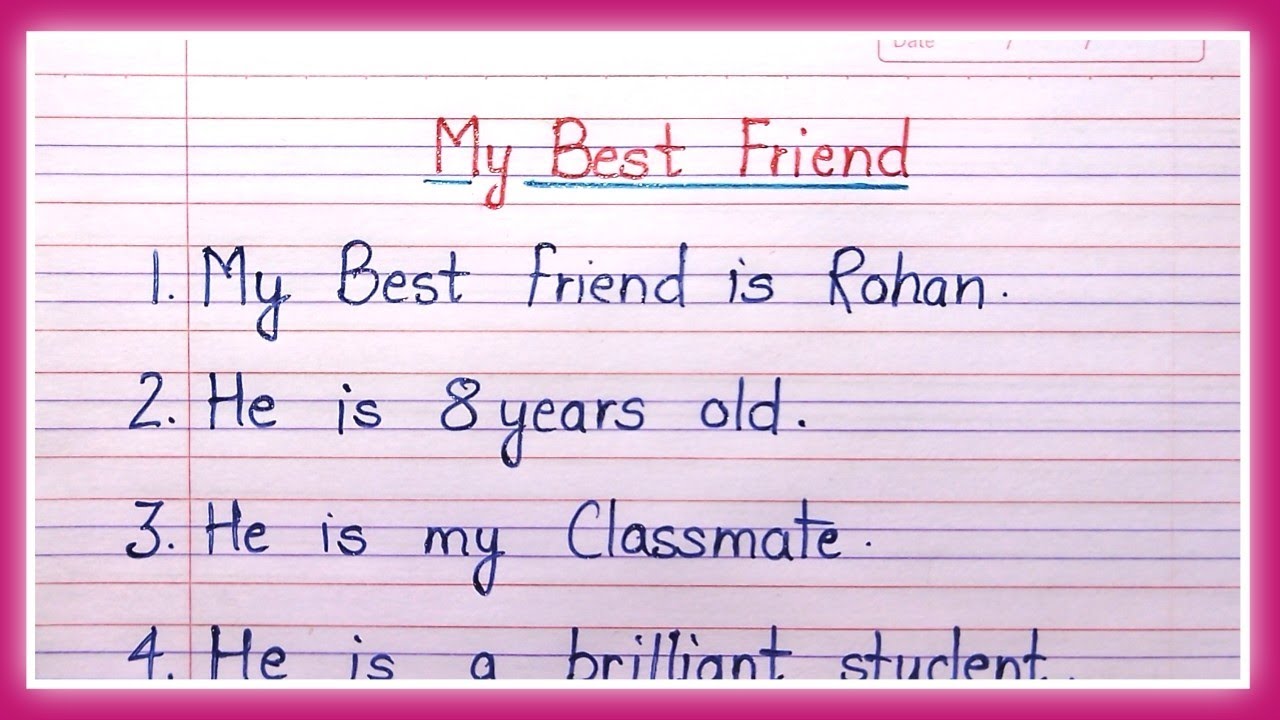 Date / /
My Best Friend
1. My Best friend is Rohan.
2. He is 8 years old.
3. He is my Classmate.
4. He is a brilliant student.